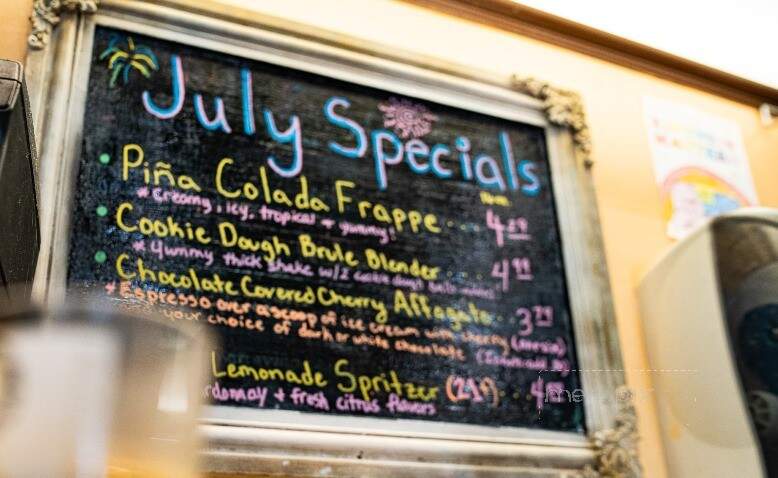 July Specials
Piña Colada Frappe
* Creamy, icy, tropical + yummy!
Cookie Dough Brule Blender 4.99
* Yummy thick shake w/2 cookie dough
Chocolate Covered Cherry Affagato
* Espresso over a scoop of ice cream with cherry
your choice of dark or white chocolate
Lemonade Spritzer (21+)
+ fresh citrus flavors